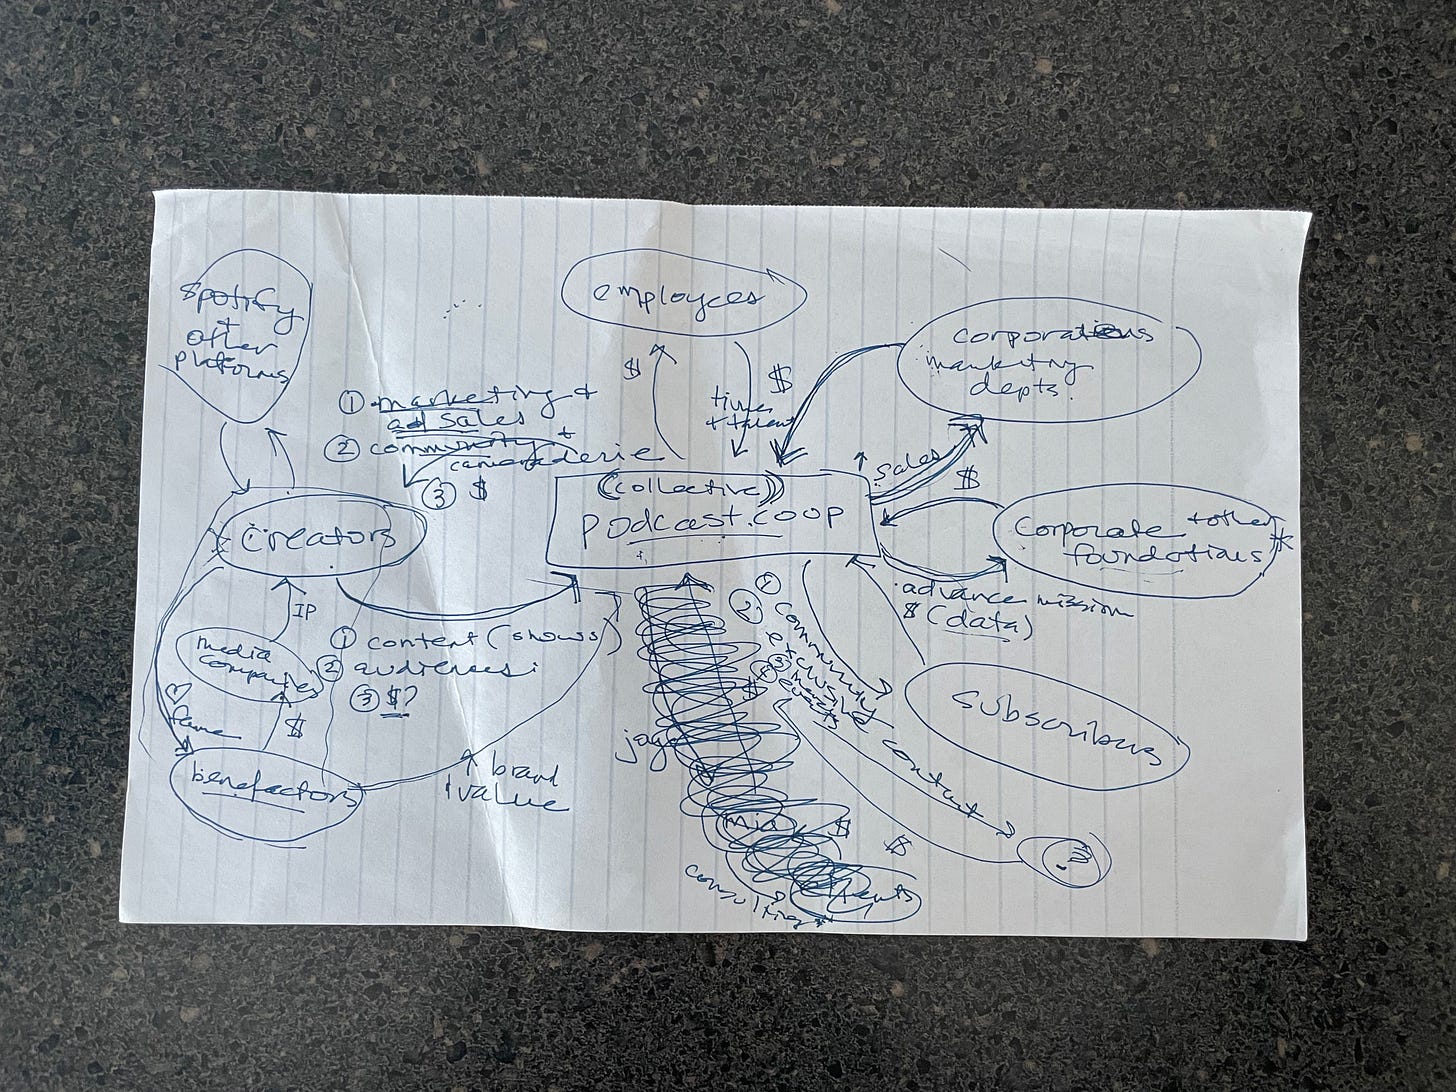 spotify
+
other
platforms
employees
corporations
marketing
depts.
$
time
+ talent
$
① marketing +
ad sales
② community +
camaraderie
③ $
↑ sales
$
((collective))
podcast.coop
creators
corporate + other *
foundations
advance mission
$ (data)
IP
media
companies
① content (shows)
② audiences:
③ $?
① community
② exclusive content
③
④ events
$
subscribers
♡
fame
$
benefactors
↑ brand
+ value
$
$
?
consulting